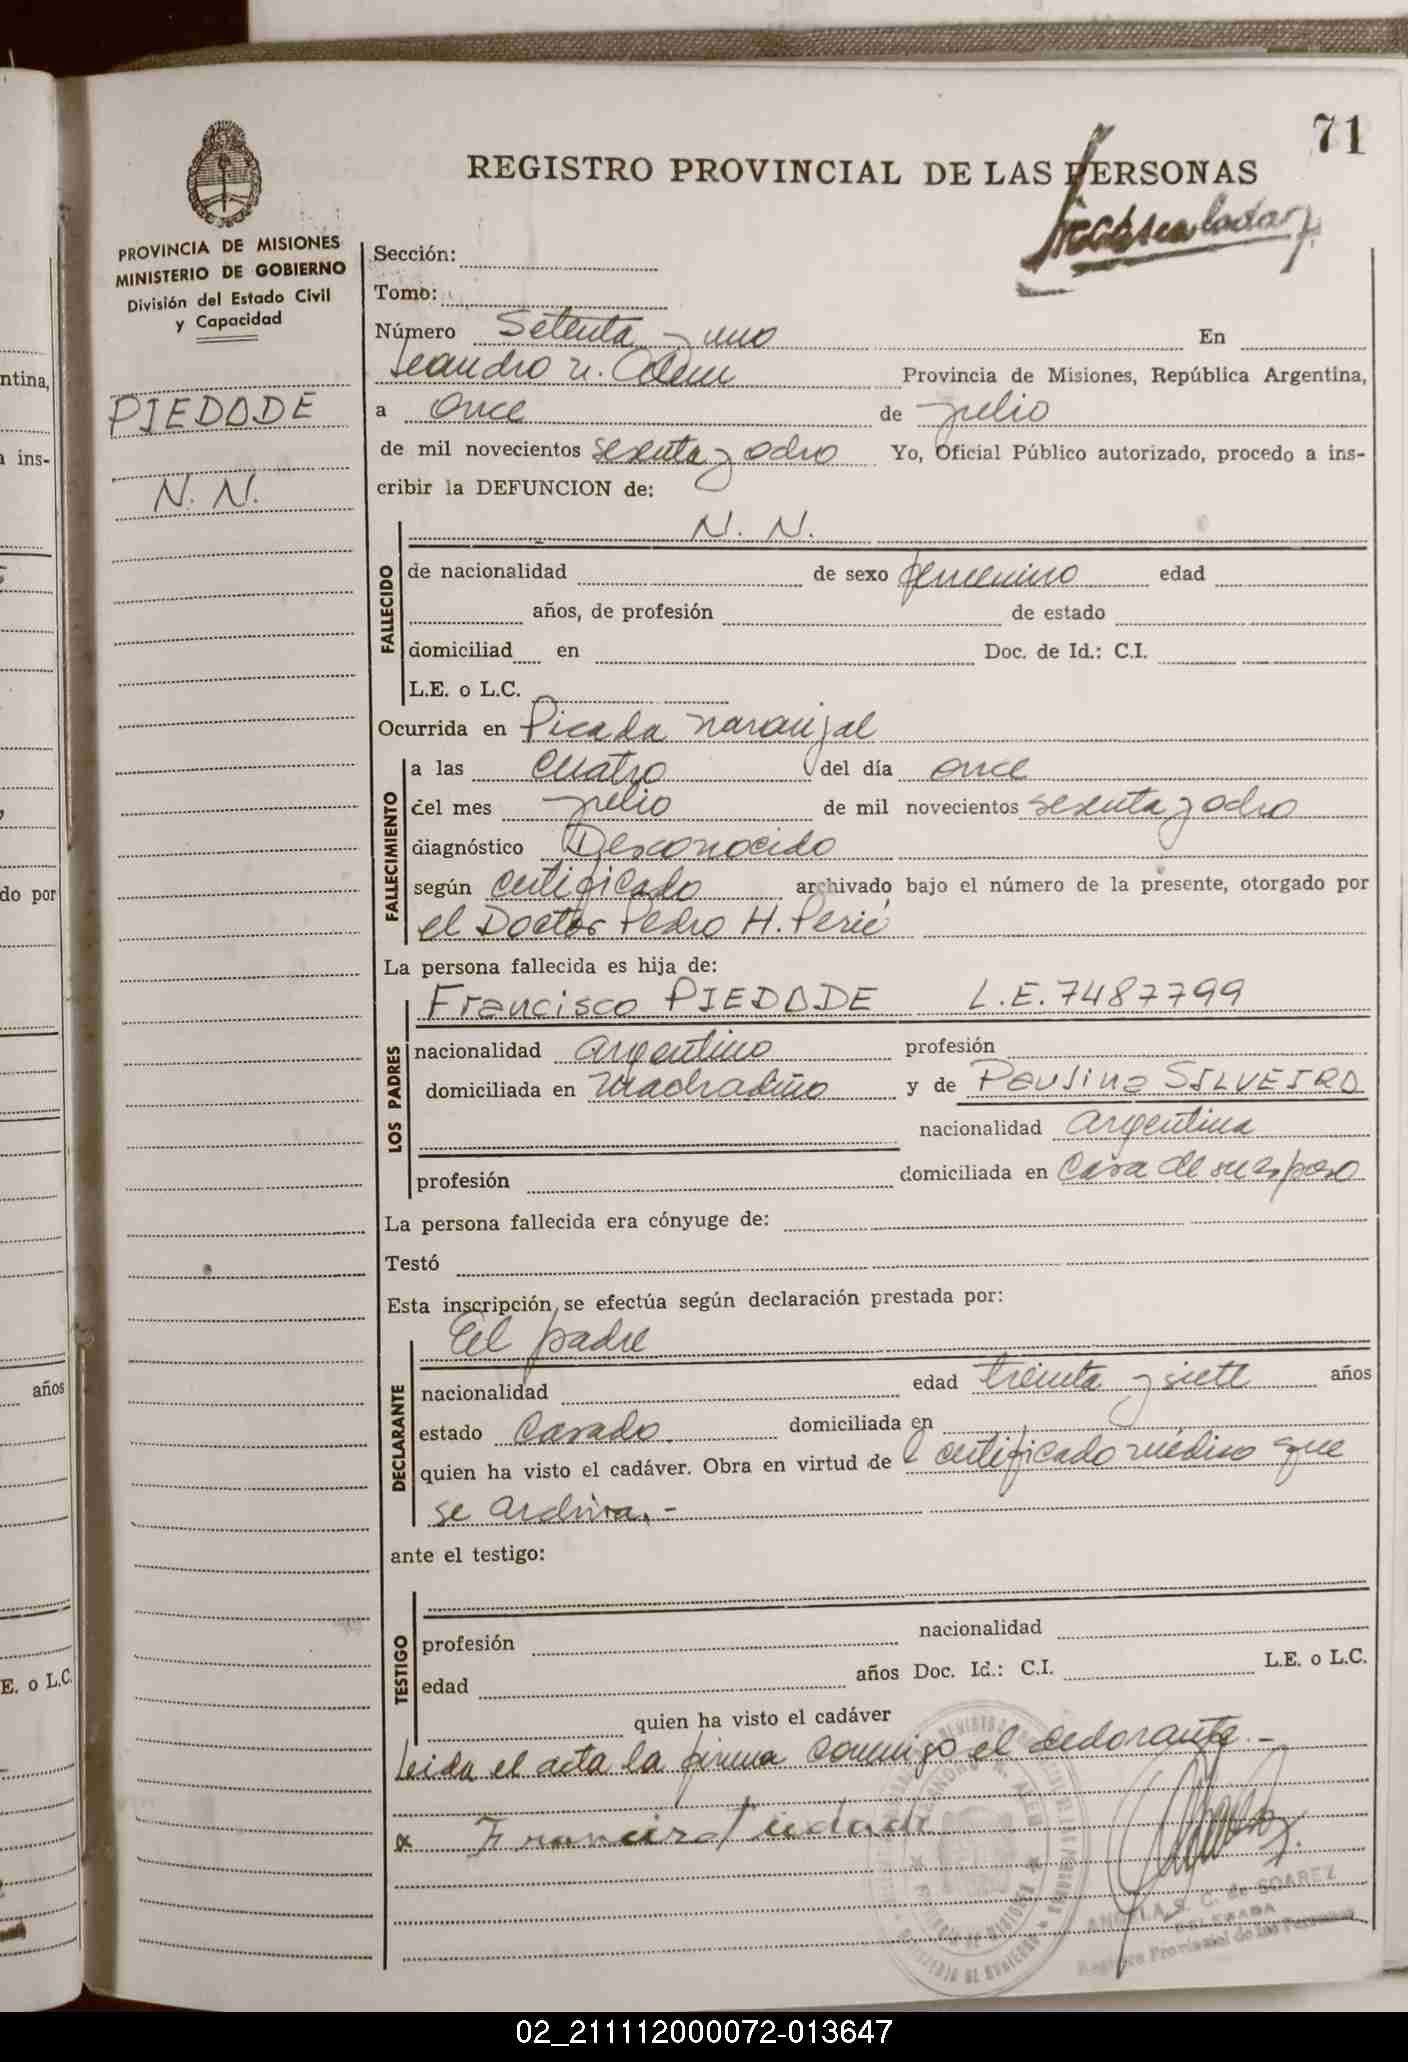 71
REGISTRO PROVINCIAL DE LAS PERSONAS
PROVINCIA DE MISIONES
MINISTERIO DE GOBIERNO
División del Estado Civil
y Capacidad
PIEDADE
N. N.
Sección:
Tomo:
Número Setenta y uno En
Leandro N. Alem Provincia de Misiones, República Argentina,
a once de julio
de mil novecientos sesenta y ocho Yo, Oficial Público autorizado, procedo a ins-
cribir la DEFUNCION de:
N. N.
FALLECIDO
de nacionalidad de sexo femenino edad
años, de profesión de estado
domiciliad en Doc. de Id.: C.I.
L.E. o L.C.
Ocurrida en Picada naranjal
FALLECIMIENTO
a las cuatro del día once
del mes julio de mil novecientos sesenta y ocho
diagnóstico Desconocido
según certificado archivado bajo el número de la presente, otorgado por
el Doctor Pedro H. Perié
La persona fallecida es hija de:
LOS PADRES
Francisco PIEDADE L.E. 7487799
nacionalidad argentino profesión
domiciliada en y de Paulina SILVEIRA
nacionalidad argentina
profesión domiciliada en Casa de su esposo
La persona fallecida era cónyuge de:
Testó
Esta inscripción se efectúa según declaración prestada por:
DECLARANTE
El padre
nacionalidad edad treinta y siete años
estado Casado domiciliada en
quien ha visto el cadáver. Obra en virtud de certificado médico que
se archiva.-
ante el testigo:
TESTIGO
profesión nacionalidad
edad años Doc. Id.: C.I. L.E. o L.C.
quien ha visto el cadáver
Leida el acta la firma conmigo el declarante.-
ANGELA S. C. de SOAREZ
DELEGADA
Registro Provincial de las Personas
ntina,
a ins-
do por
años
E. o L.C.
02_211112000072-013647